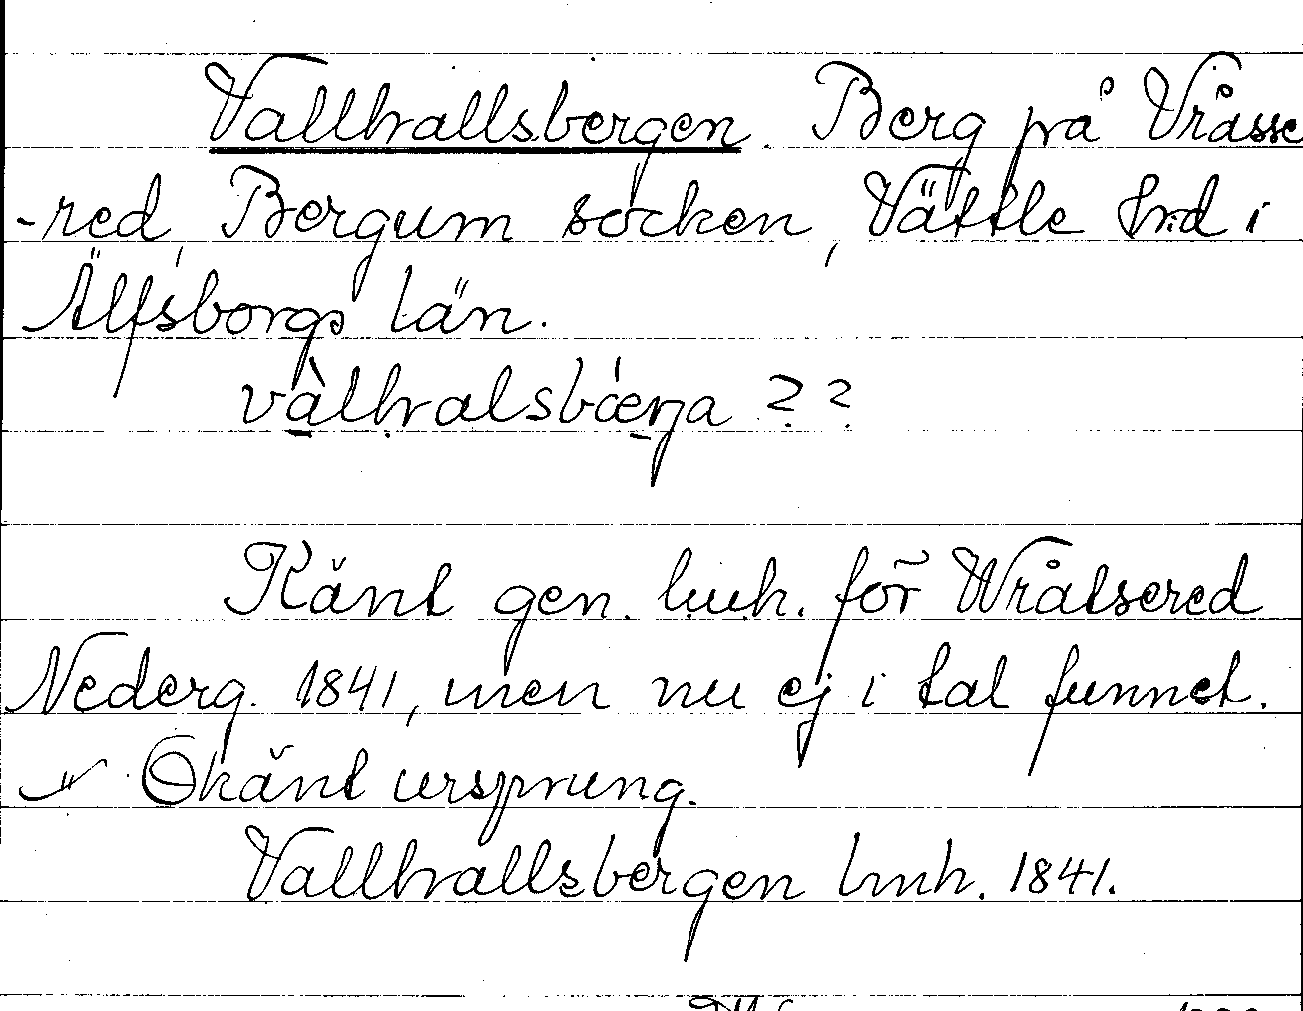 Vallhallsbergen. Berg på Vråsse
-red, Bergum socken, Vättle hrd i
Älfsborgs län.
vàlhalsbáæŋa ??
Känt gen. lmh. för Wråtsered
Nederg. 1841, men nu ej i tal funnet.
Okänt ursprung.
Vallhallsbergen lmh. 1841.